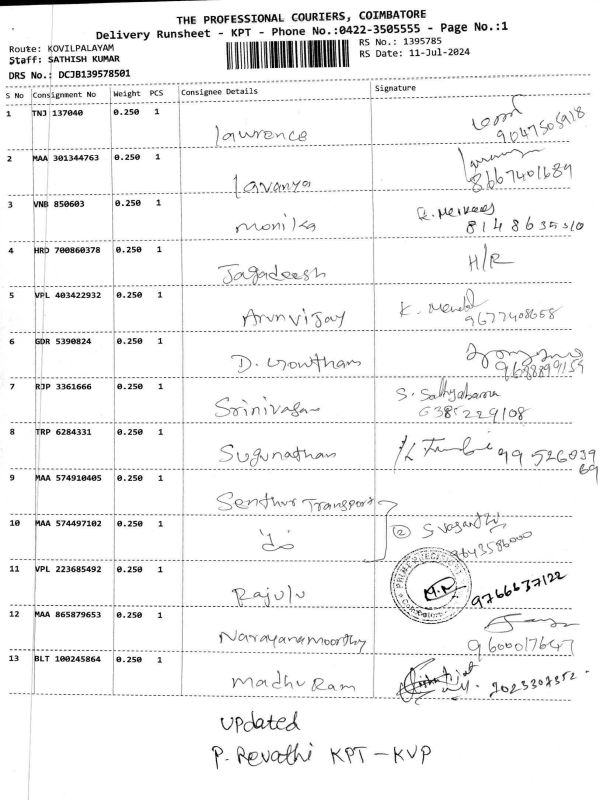 THE PROFESSIONAL COURIERS, COIMBATORE
Delivery Runsheet - KPT - Phone No.:0422-3505555 - Page No.:1
Route: KOVILPALAYAM
RS No.: 1395785
Staff: SATHISH KUMAR
RS Date: 11-Jul-2024
DRS No.: DCJB139578501
S No Consignment No Weight PCS Consignee Details Signature
1 TNJ 137040 0.250 1
Lawrence
2 MAA 301344763 0.250 1
Lavanya 8667401689
3 VNB 850603 0.250 1
monika 8148635310
4 HRD 700860378 0.250 1
Jagadeesh H/R
5 VPL 403422932 0.250 1
Arunvijay K. 9677408658
6 GDR 5390824 0.250 1
D. Gowtham
7 RJP 3361666 0.250 1
Srinivasan S. Sathyabama
6385229108
8 TRP 6284331 0.250 1
Sugunathan 99 526039
69
9 MAA 574910405 0.250 1
Senthur Transport
10 MAA 574497102 0.250 1
② S vasanthi
9643586000
11 VPL 223685492 0.250 1
Rajulu 9766637122
12 MAA 865879653 0.250 1
Narayanamoorthy 9600017647
13 BLT 100245864 0.250 1
madhu Ram
updated
P. Revathi KPT - KVP